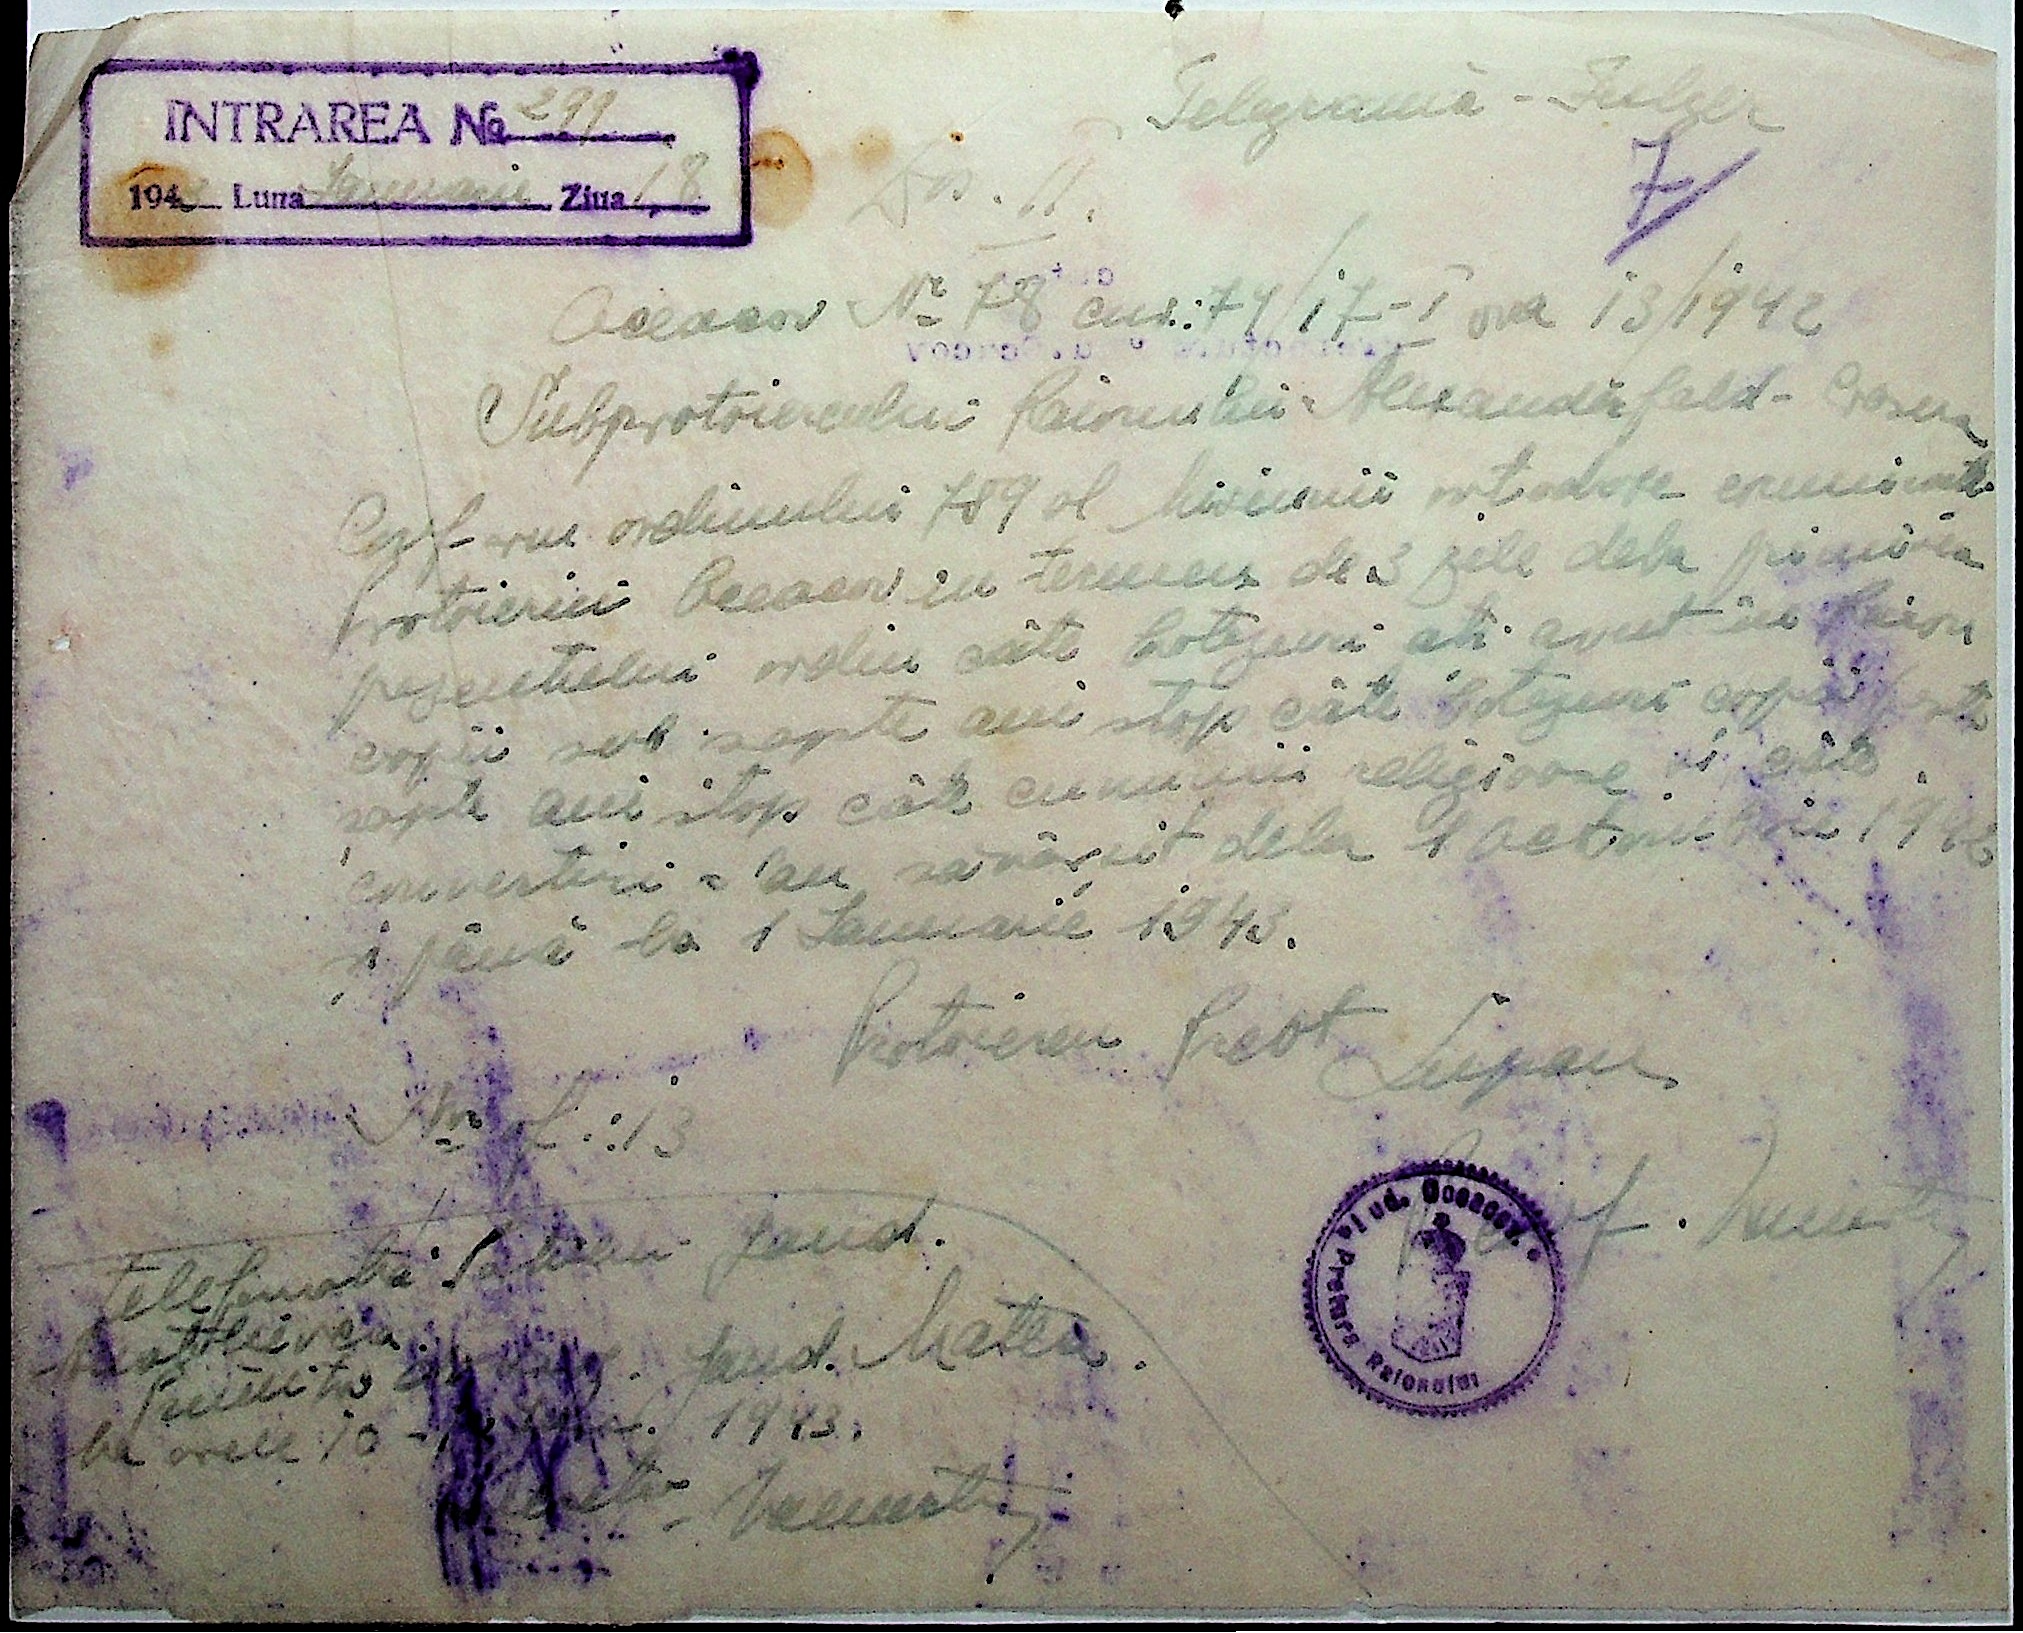 INTRAREA No 299
194 Luna Ianuarie Ziua 18
Telegramă - Fulger
7
Dos. II.
Oceacov No 78 cuv: 74/17-I ora 13/1942
Subprotoiereului Raionului Alexandrfeld - Crasna
Conform ordinului 789 al Misiunii ortodoxe comunicati
Protoieriei Oceacov in termen de 3 zile dela primirea
prezentului ordin câte botezuri ati avut in Raion
copii sub sapte ani stop câte botezuri copii peste
sapte ani stop câte cununii religioase și câte
convertiri s'au săvârșit dela 1 Octombrie 1942
și până la 1 Ianuarie 1943.
Protoiereu Preot Lupan
No 13
Jud. Oceacov.
Pretura Raionului
Telefonata jand.
jand. Matei.
la orele 10 1943.